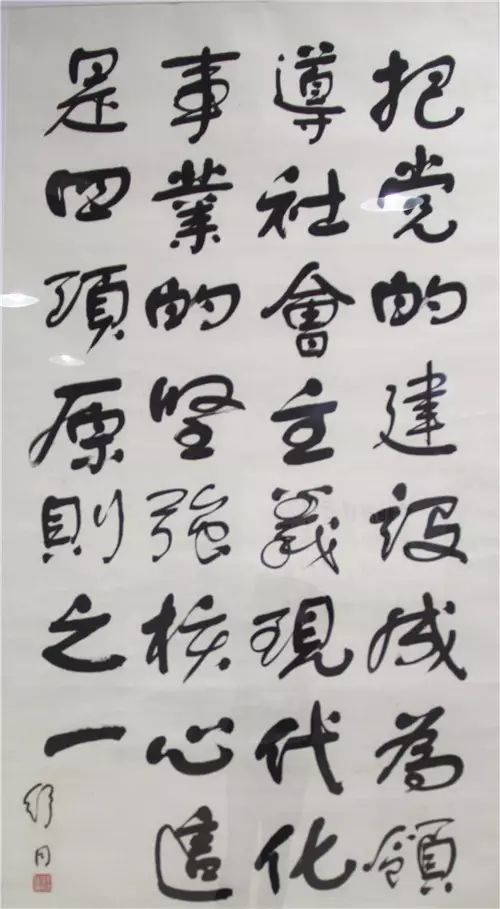 把党的建設成為領
導社會主義現代化
事業的堅強核心這
是四項原則之一
舒同